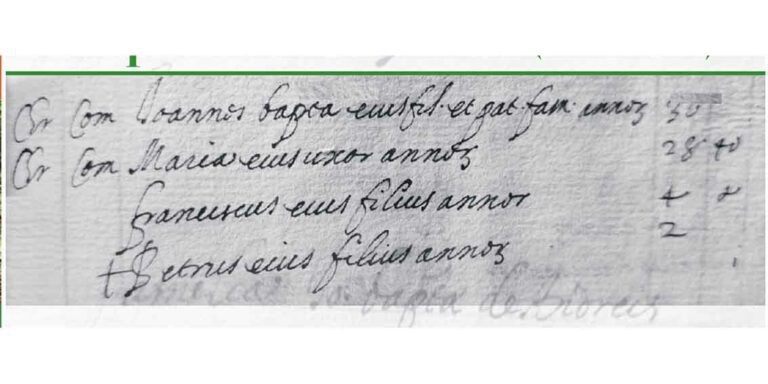 Cr Com Joannes bapta eius fil. et pat. fam. annoꝝ 30
Cr Com Maria eius uxor annoꝝ 28
Franciscus eius filius annoꝝ 4
+ Petrus eius filius annoꝝ 2
bapta de